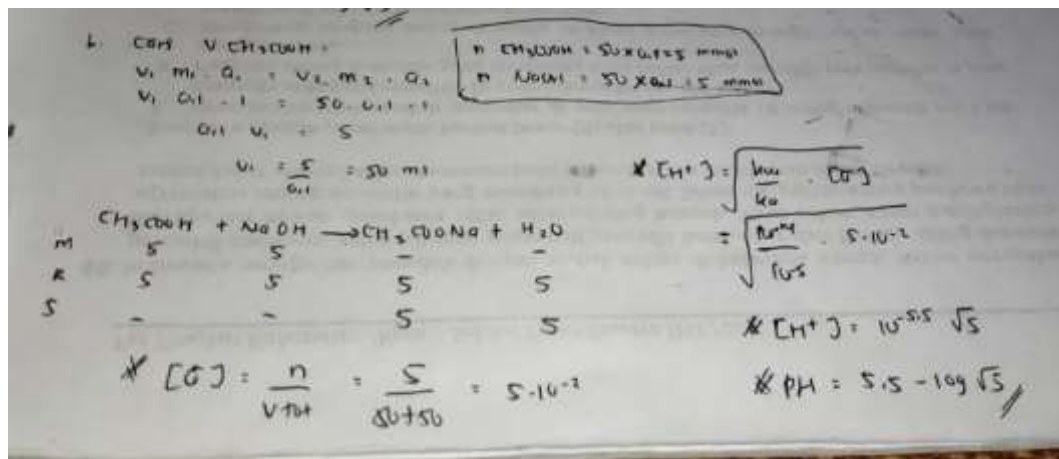 b. Cari V CH₃COOH =
V₁ M₁ . a₁ = V₂ M₂ . a₂
V₁ 0,1 . 1 = 50 . 0,1 . 1
0,1 V₁ = 5
V₁ = 5/0,1 = 50 ml
n CH₃COOH = 50 x 0,1 = 5 mmol
n NaOH = 50 x 0,1 = 5 mmol
CH₃COOH + NaOH → CH₃COONa + H₂O
M 5 5 - -
R 5 5 5 5
S - - 5 5
* [G] = n/V tot = 5/50+50 = 5.10⁻²
* [H⁺] = √(kw/ka . [G])
= √(10⁻¹⁴/10⁻⁵ . 5.10⁻²)
* [H⁺] = 10⁻⁵·⁵ √5
* PH = 5,5 - log √5